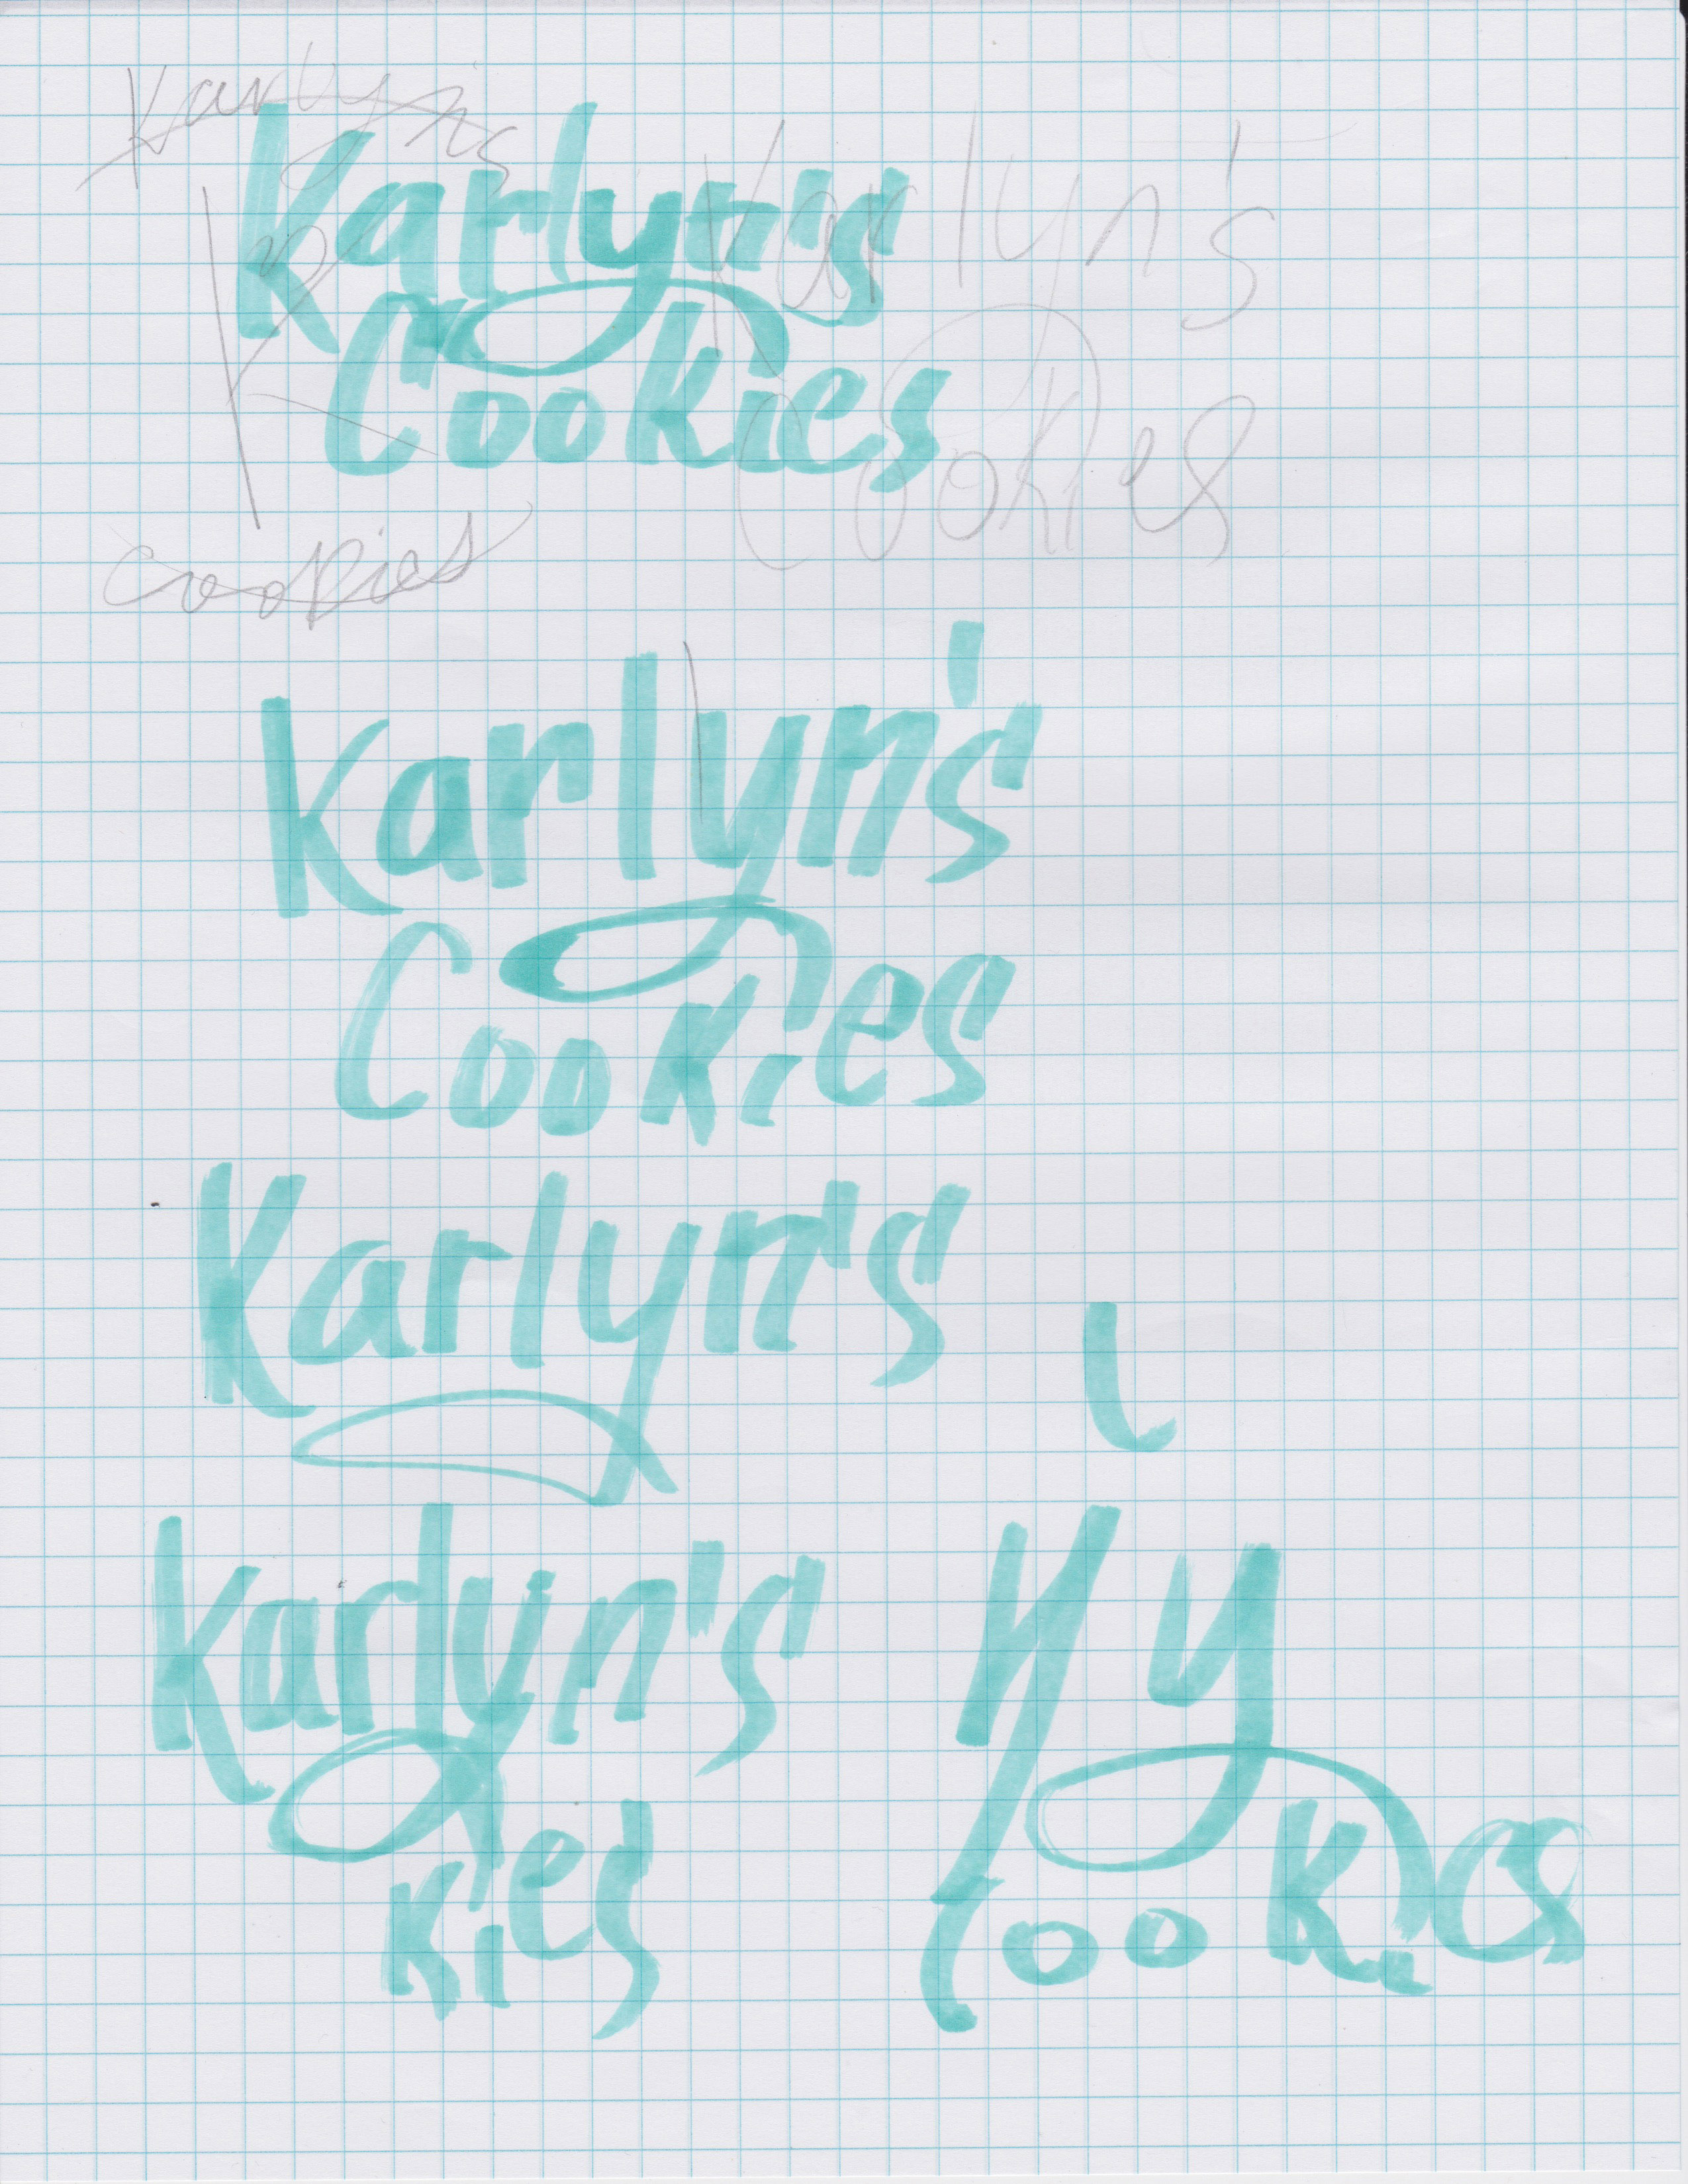 Karlyn's
Karlyn's
Cookies
Karlyn's
Cookies
K
cookies
Karlyn's
Cookies
Karlyn's
Karlyn's
kies
ny
Cookies